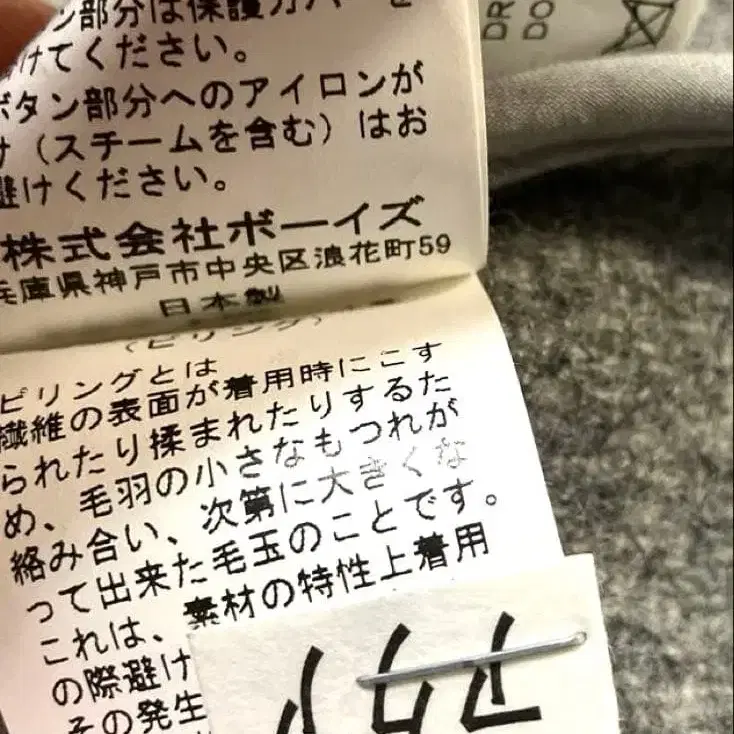 ン部分は保護カバーを
けてください。
ボタン部分へのアイロンが
け（スチームを含む）はお
避けください。
株式会社ボーイズ
兵庫県神戸市中央区浪花町59
日本製
（ピリング）
ピリングとは
繊維の表面が着用時にこす
られたり揉まれたりするた
め、毛羽の小さなもつれが
絡み合い、次第に大きくな
って出来た毛玉のことです。
これは、素材の特性上着用
の際避け
その発生
DR
DO